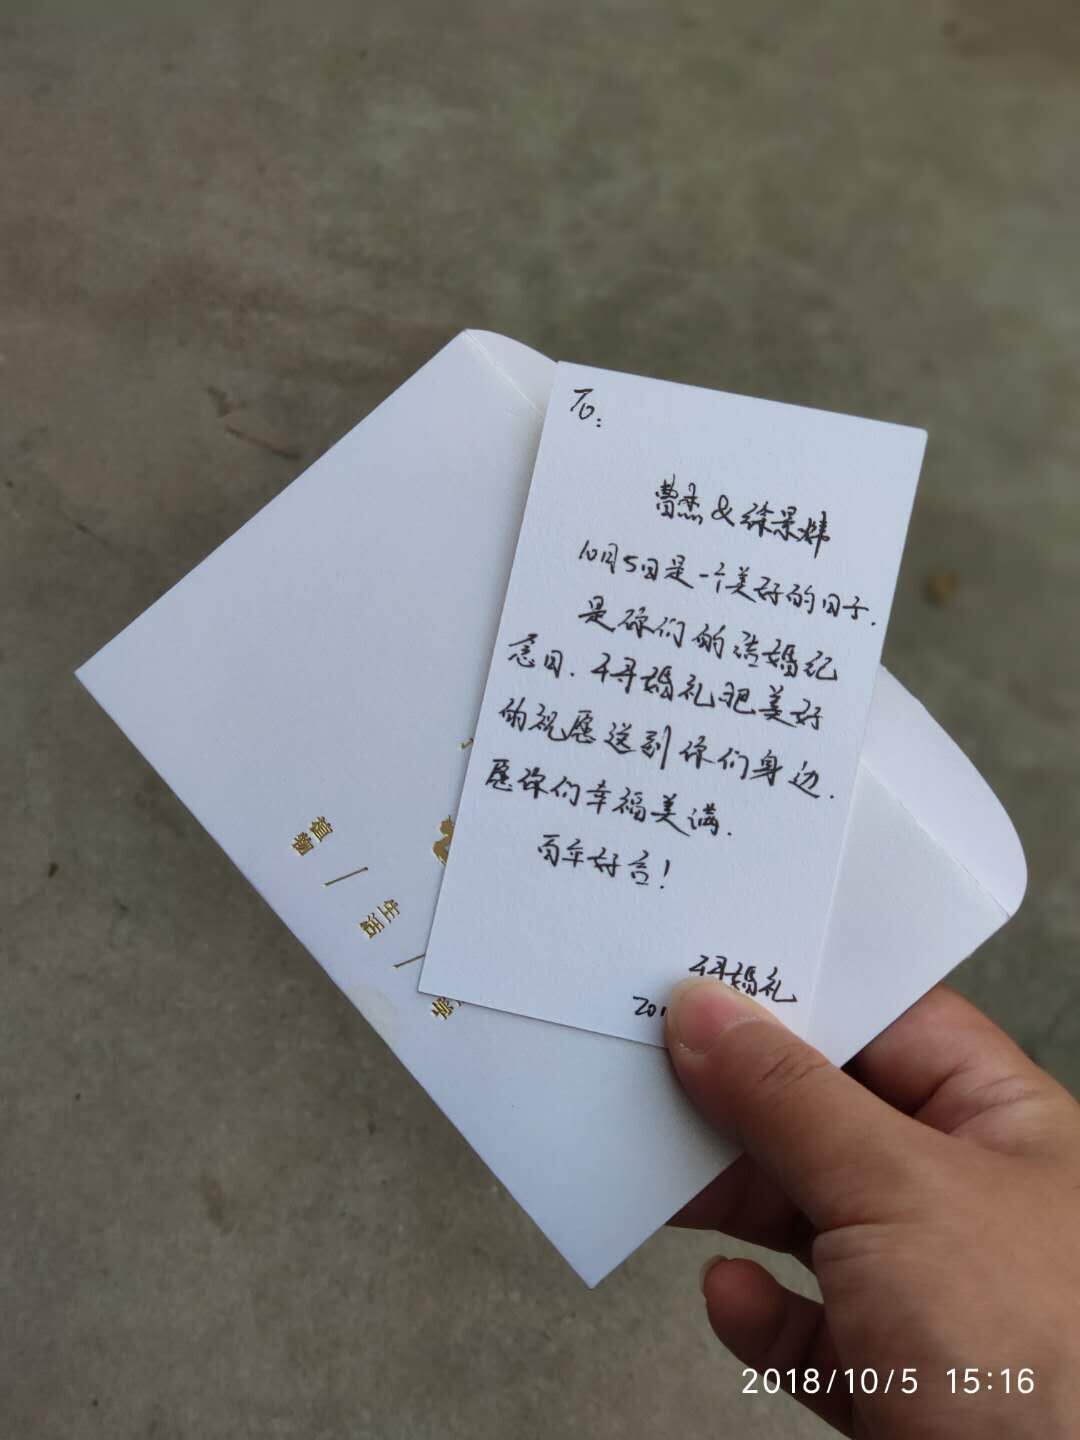 To:
曹杰&徐景炜
10月5日是一个美好的日子.
是你们的结婚纪
念日.禾寻婚礼把美好
的祝愿送到你们身边.
愿你们幸福美满.
百年好合!
禾寻婚礼
201
植物
生活
2018/10/5 15:16